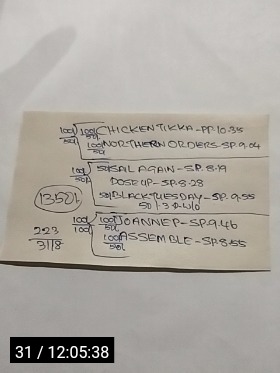 100/50 100/50 CHICKEN TIKKA - PF. 10.35
100/50 NORTHERN ORDERS - SP. 9.04
100/50 50 SAIL AGAIN - SP. 8.19
DOSE UP - SP. 8.28
50 BLACK TUESDAY - SP. 9.55
1350/
223
3118
100/100 100/50 JOANNIE P - SP. 9.46
100/50 ASSEMBLE - SP. 8.55
31 / 12:05:38